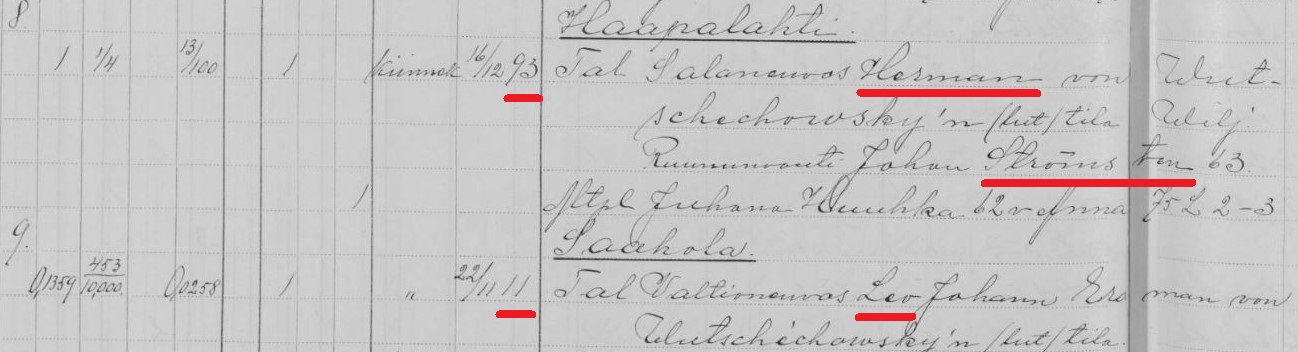 8.
Haapalahti.
1 1/4 13/100 1 kiinnek 16/12 93 Tal Salaneuvos Herman von Wut-
schechowsky'n /lut/ tila Wilj.
Ruununvouti Johan Ströms ten 63.
1 Mtpl Juhana Huuhka 62 v Anna 75 L 2-3
9. Saahola.
0,1359 453/10,000. 0,0258 1 " 22/11 11 Tal Valtioneuvos Leo Johann Ero man von
Wutschéchowsky'n /lut/ tila.